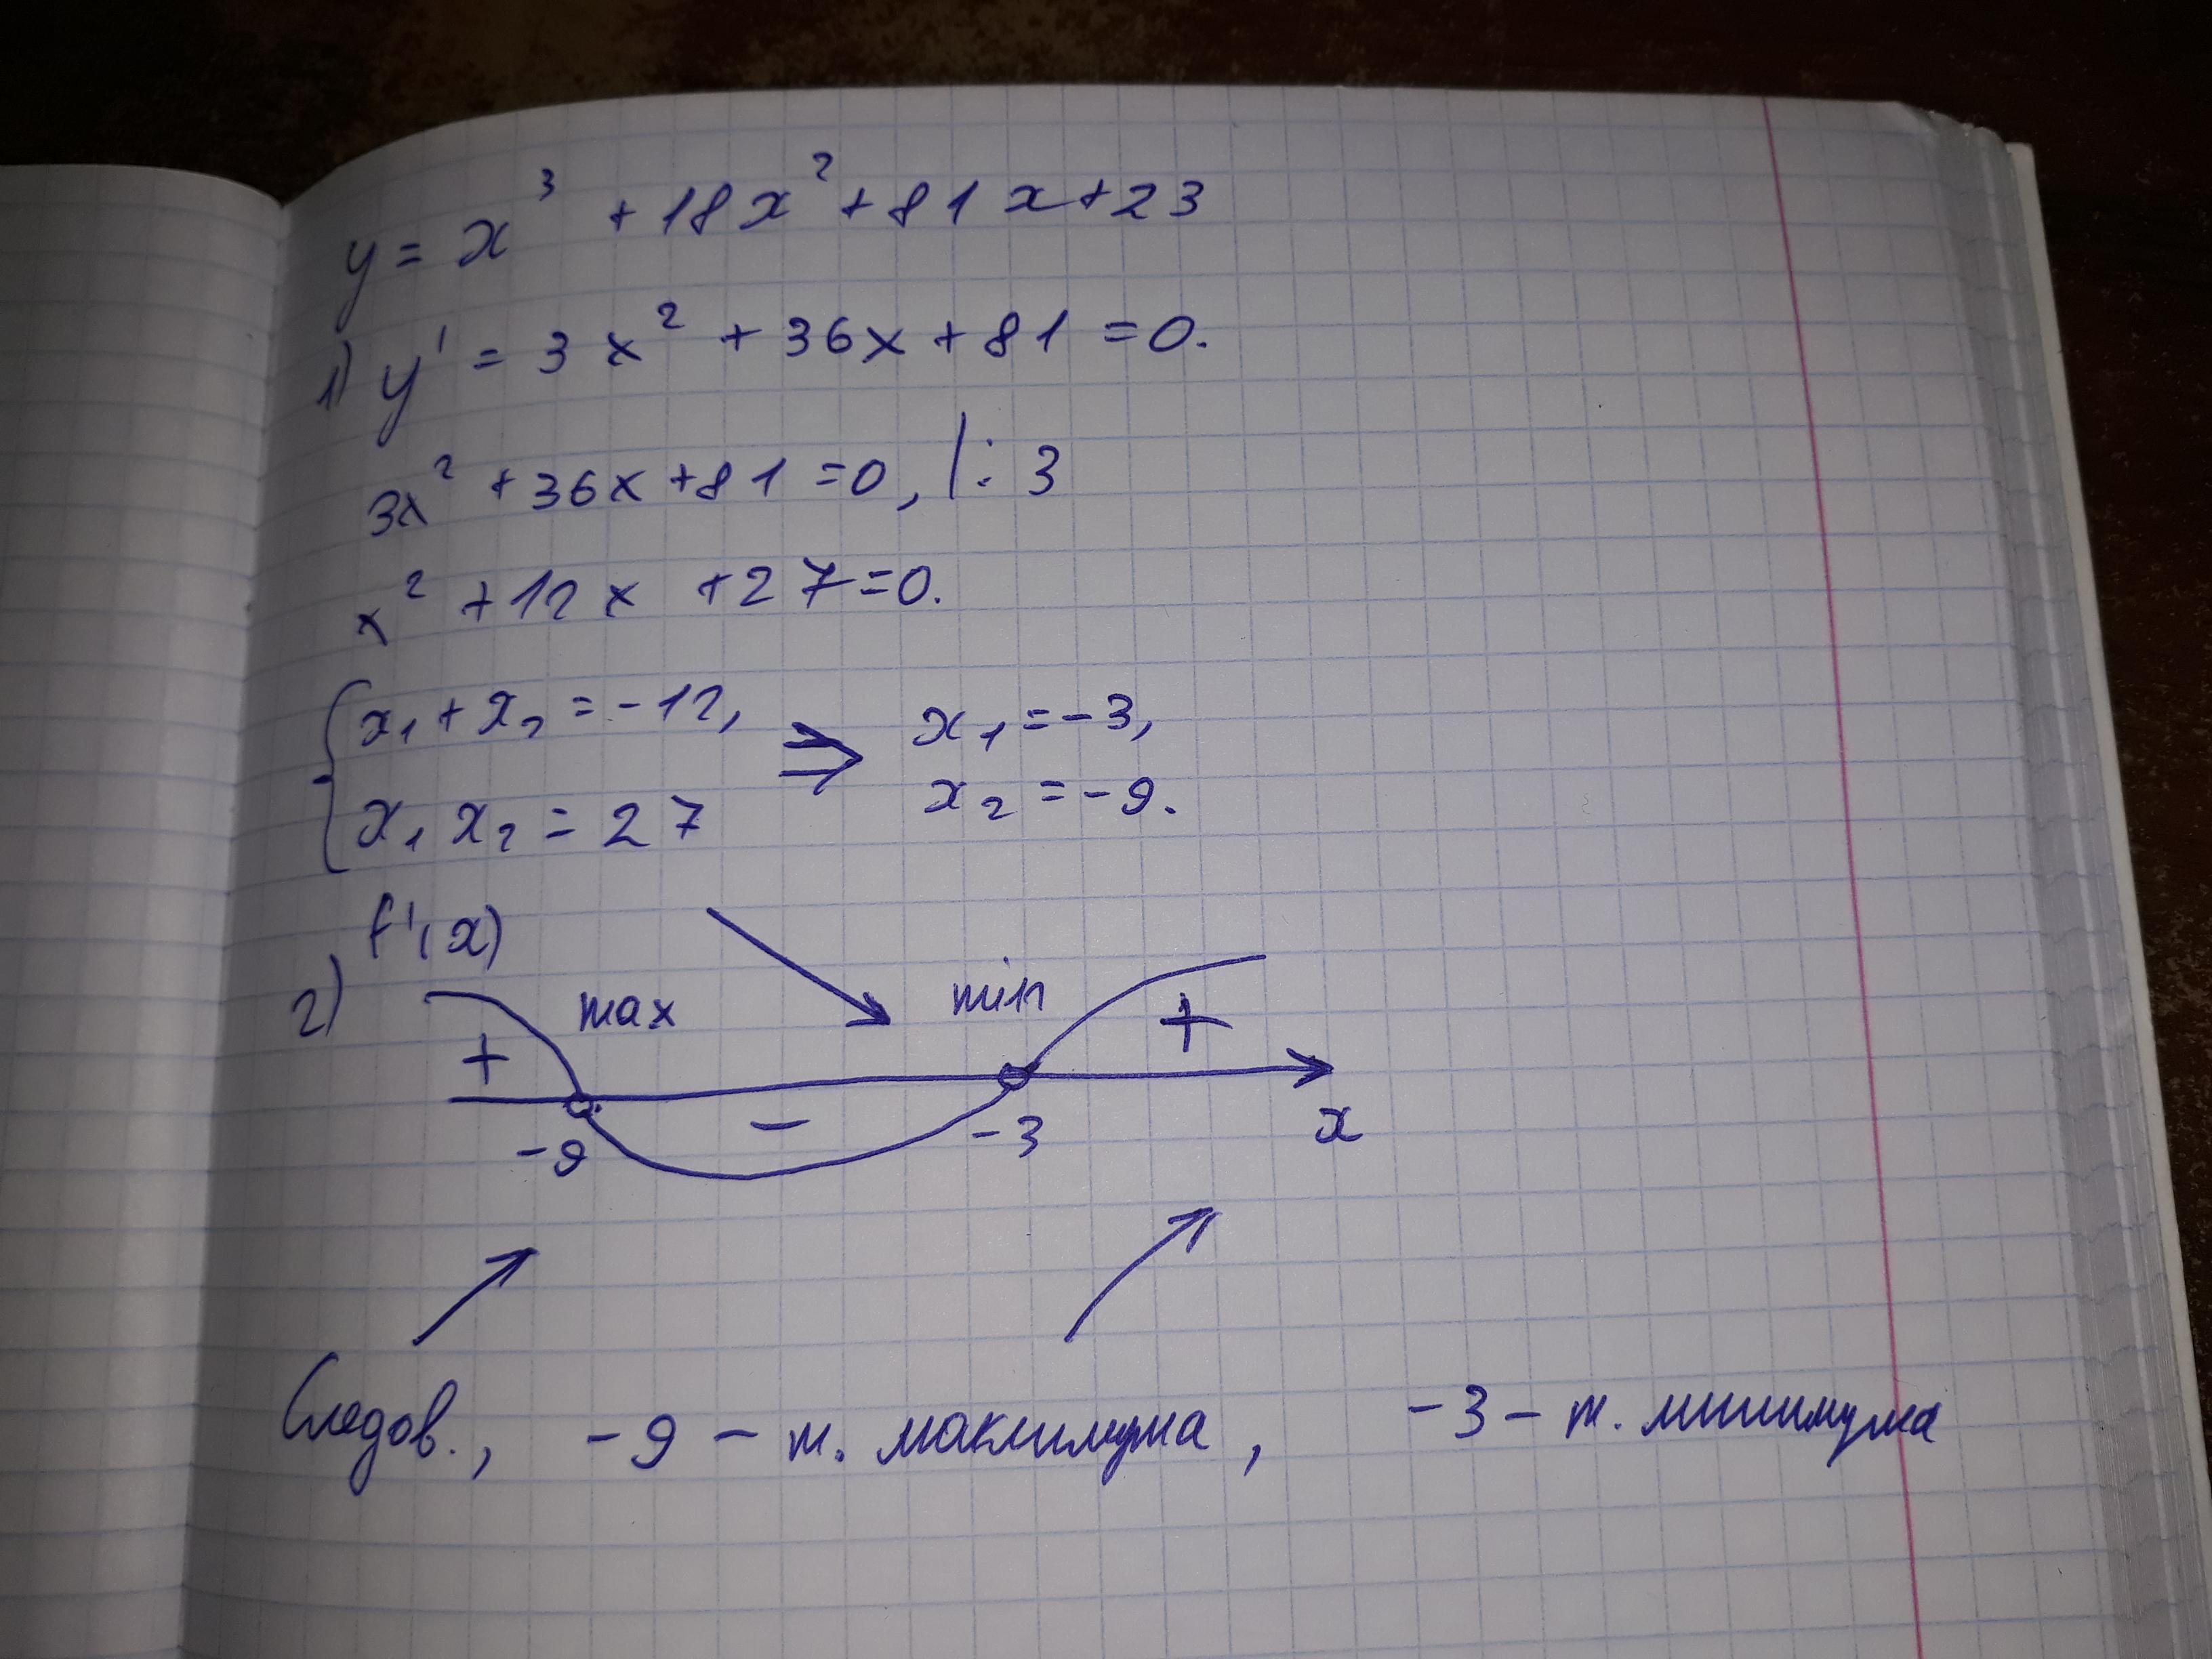 y = x³ + 18x² + 81x + 23
1) y' = 3x² + 36x + 81 = 0.
3x² + 36x + 81 = 0, |: 3
x² + 12x + 27 = 0.
{ x₁ + x₂ = -12, ⇒ x₁ = -3,
x₁ x₂ = 27 x₂ = -9.
f'(x)
2) + max - min +
-9 -3 x
Следов., -9 - т. максимума, -3 - т. минимума